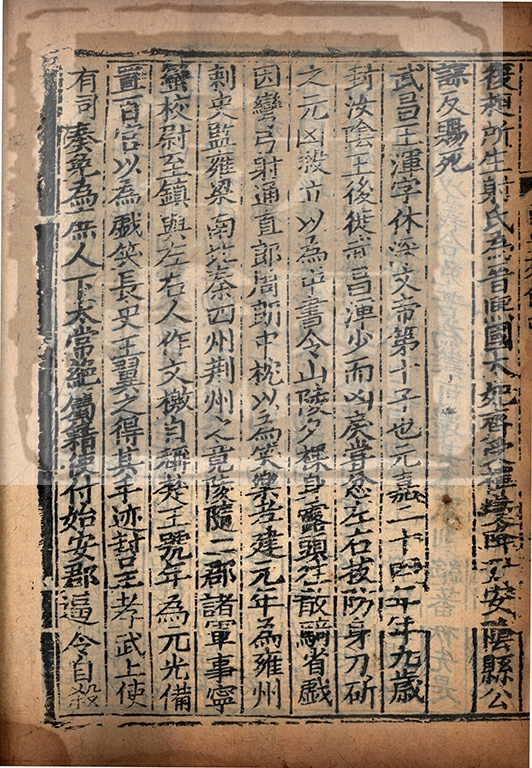 後梗所生射氏為晉熙國太妃齊受禪降封安陰縣公
謀反賜死
武昌王渾字休淵文帝第十子也元嘉二十四年年九歲
封汝陰王後徙武昌渾少而凶戾嘗忿左右拔防身刀斫
之元凶弒立以為中書令山陵夕裸身露頭往散騎省戲
因彎弓射通直郎周朗中枕以為笑樂孝建元年為雍州
刺史監雍梁南北秦四州荊州之竟陵隨二郡諸軍事寧
蠻校尉至鎮與左右人作文檄自稱楚王號年為元光備
置百官以為戲笑長史王翼之得其手迹封王孝武上使
有司奏免為庶人下太常絕屬籍徙付始安郡逼令自殺